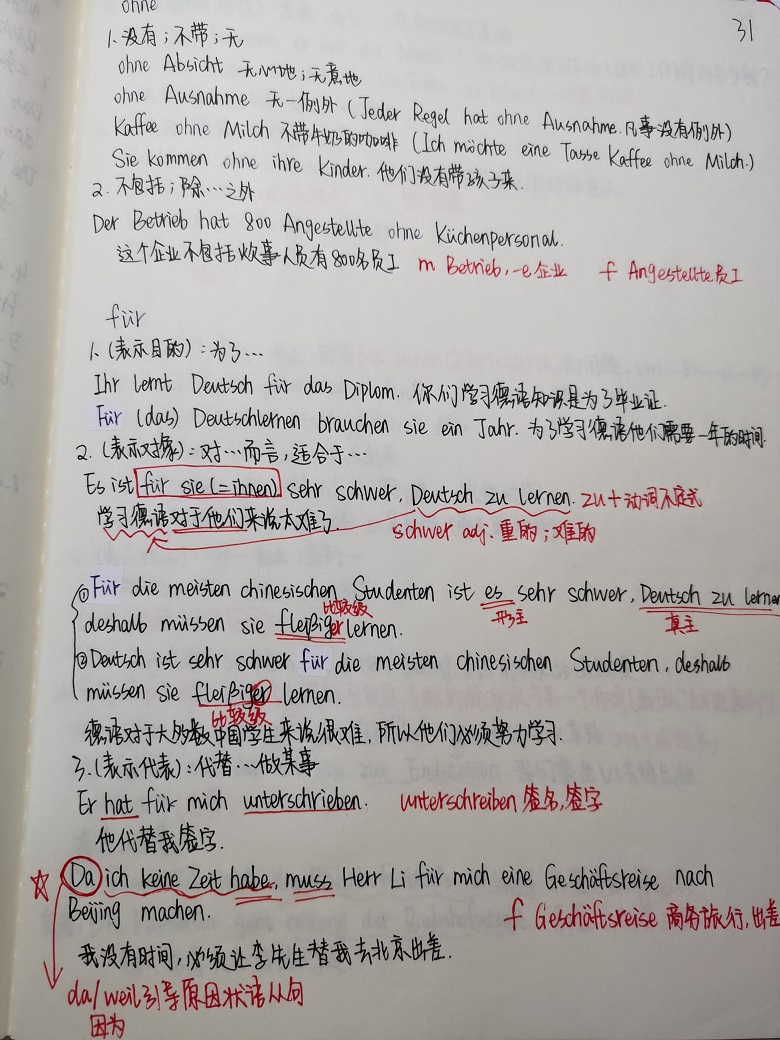 31
ohne
1. 没有；不带；无
ohne Absicht 无心地；无意地
ohne Ausnahme 无一例外 (Jeder Regel hat ohne Ausnahme. 凡事没有例外)
Kaffee ohne Milch 不带牛奶的咖啡 (Ich möchte eine Tasse Kaffee ohne Milch.)
Sie kommen ohne ihre Kinder. 他们没有带孩子来.
2. 不包括；除…之外
Der Betrieb hat 800 Angestellte ohne Küchenpersonal.
这个企业不包括炊事人员有800名员工 m Betrieb, -e 企业 f Angestellte 员工
für
1. (表示目的)：为了…
Ihr lernt Deutsch für das Diplom. 你们学习德语知识是为了毕业证.
Für (das) Deutschlernen brauchen sie ein Jahr. 为了学习德语他们需要一年的时间.
2. (表示对象)：对…而言，适合于…
Es ist für sie (=ihnen) sehr schwer, Deutsch zu lernen. zu+动词不定式
学习德语对于他们来说太难了. schwer adj. 重的；难的
① Für die meisten chinesischen Studenten ist es sehr schwer, Deutsch zu lernen
比较级 形主 真主
deshalb müssen sie fleißiger lernen.
② Deutsch ist sehr schwer für die meisten chinesischen Studenten, deshalb
müssen sie fleißiger lernen.
比较级
德语对于大多数中国学生来说很难，所以他们必须努力学习.
3. (表示代表)：代替…做某事
Er hat für mich unterschrieben. unterschreiben 签名，签字
他代替我签字.
☆ Da ich keine Zeit habe, muss Herr Li für mich eine Geschäftsreise nach
Beijing machen. f Geschäftsreise 商务旅行，出差
我没有时间，必须让李先生替我去北京出差.
da/weil引导原因状语从句
因为